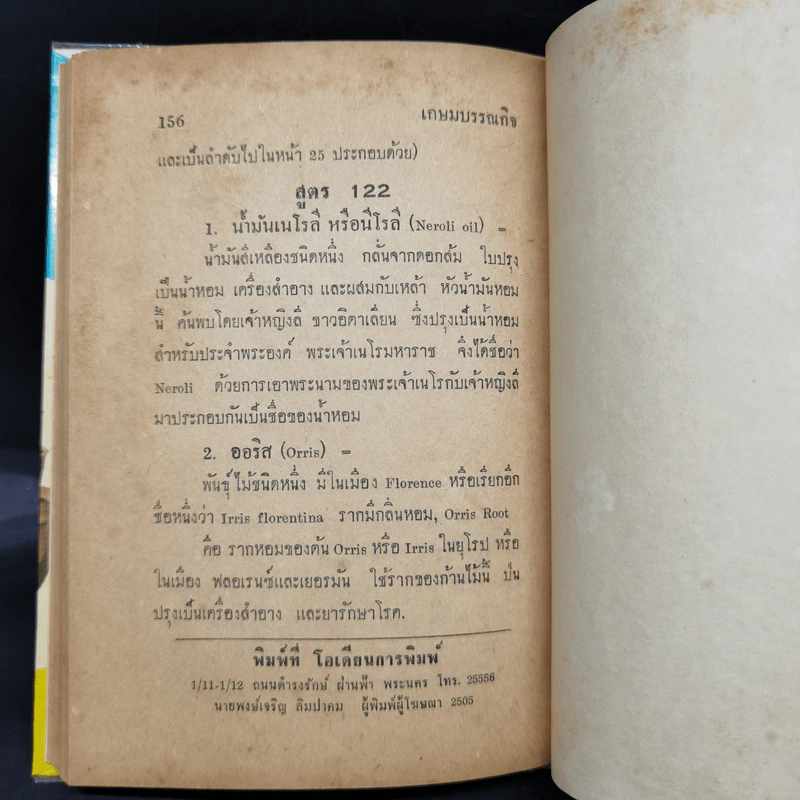 156
เกษมบรรณกิจ
และเป็นลำดับไปในหน้า 25 ประกอบด้วย)
สูตร 122
1. น้ำมันเนโรลี หรือนีโรลี (Neroli oil) –
น้ำมันสีเหลืองชนิดหนึ่ง กลั่นจากดอกส้ม ใบปรุง
เป็นน้ำหอม เครื่องสำอาง และผสมกับเหล้า หัวน้ำมันหอม
นี้ ค้นพบโดยเจ้าหญิงลี ชาวอิตาเลี่ยน ซึ่งปรุงเป็นน้ำหอม
สำหรับประจำพระองค์ พระเจ้าเนโรมหาราช จึงได้ชื่อว่า
Neroli ด้วยการเอาพระนามของพระเจ้าเนโรกับเจ้าหญิงลี
มาประกอบกันเป็นชื่อของน้ำหอม
2. ออริส (Orris) –
พันธุ์ไม้ชนิดหนึ่ง มีในเมือง Florence หรือเรียกอีก
ชื่อหนึ่งว่า Irris florentina รากมีกลิ่นหอม, Orris Root
คือ รากหอมของต้น Orris หรือ Irris ในยุโรป หรือ
ในเมือง ฟลอเรนซ์และเยอรมัน ใช้รากของก้านไม้นี้ ป่น
ปรุงเป็นเครื่องสำอาง และยารักษาโรค.
พิมพ์ที่ โอเดียนการพิมพ์
1/11-1/12 ถนนดำรงรักษ์ ผ่านฟ้า พระนคร โทร. 25556
นายพงษ์เจริญ ลิมปาคม ผู้พิมพ์ผู้โฆษณา 2505